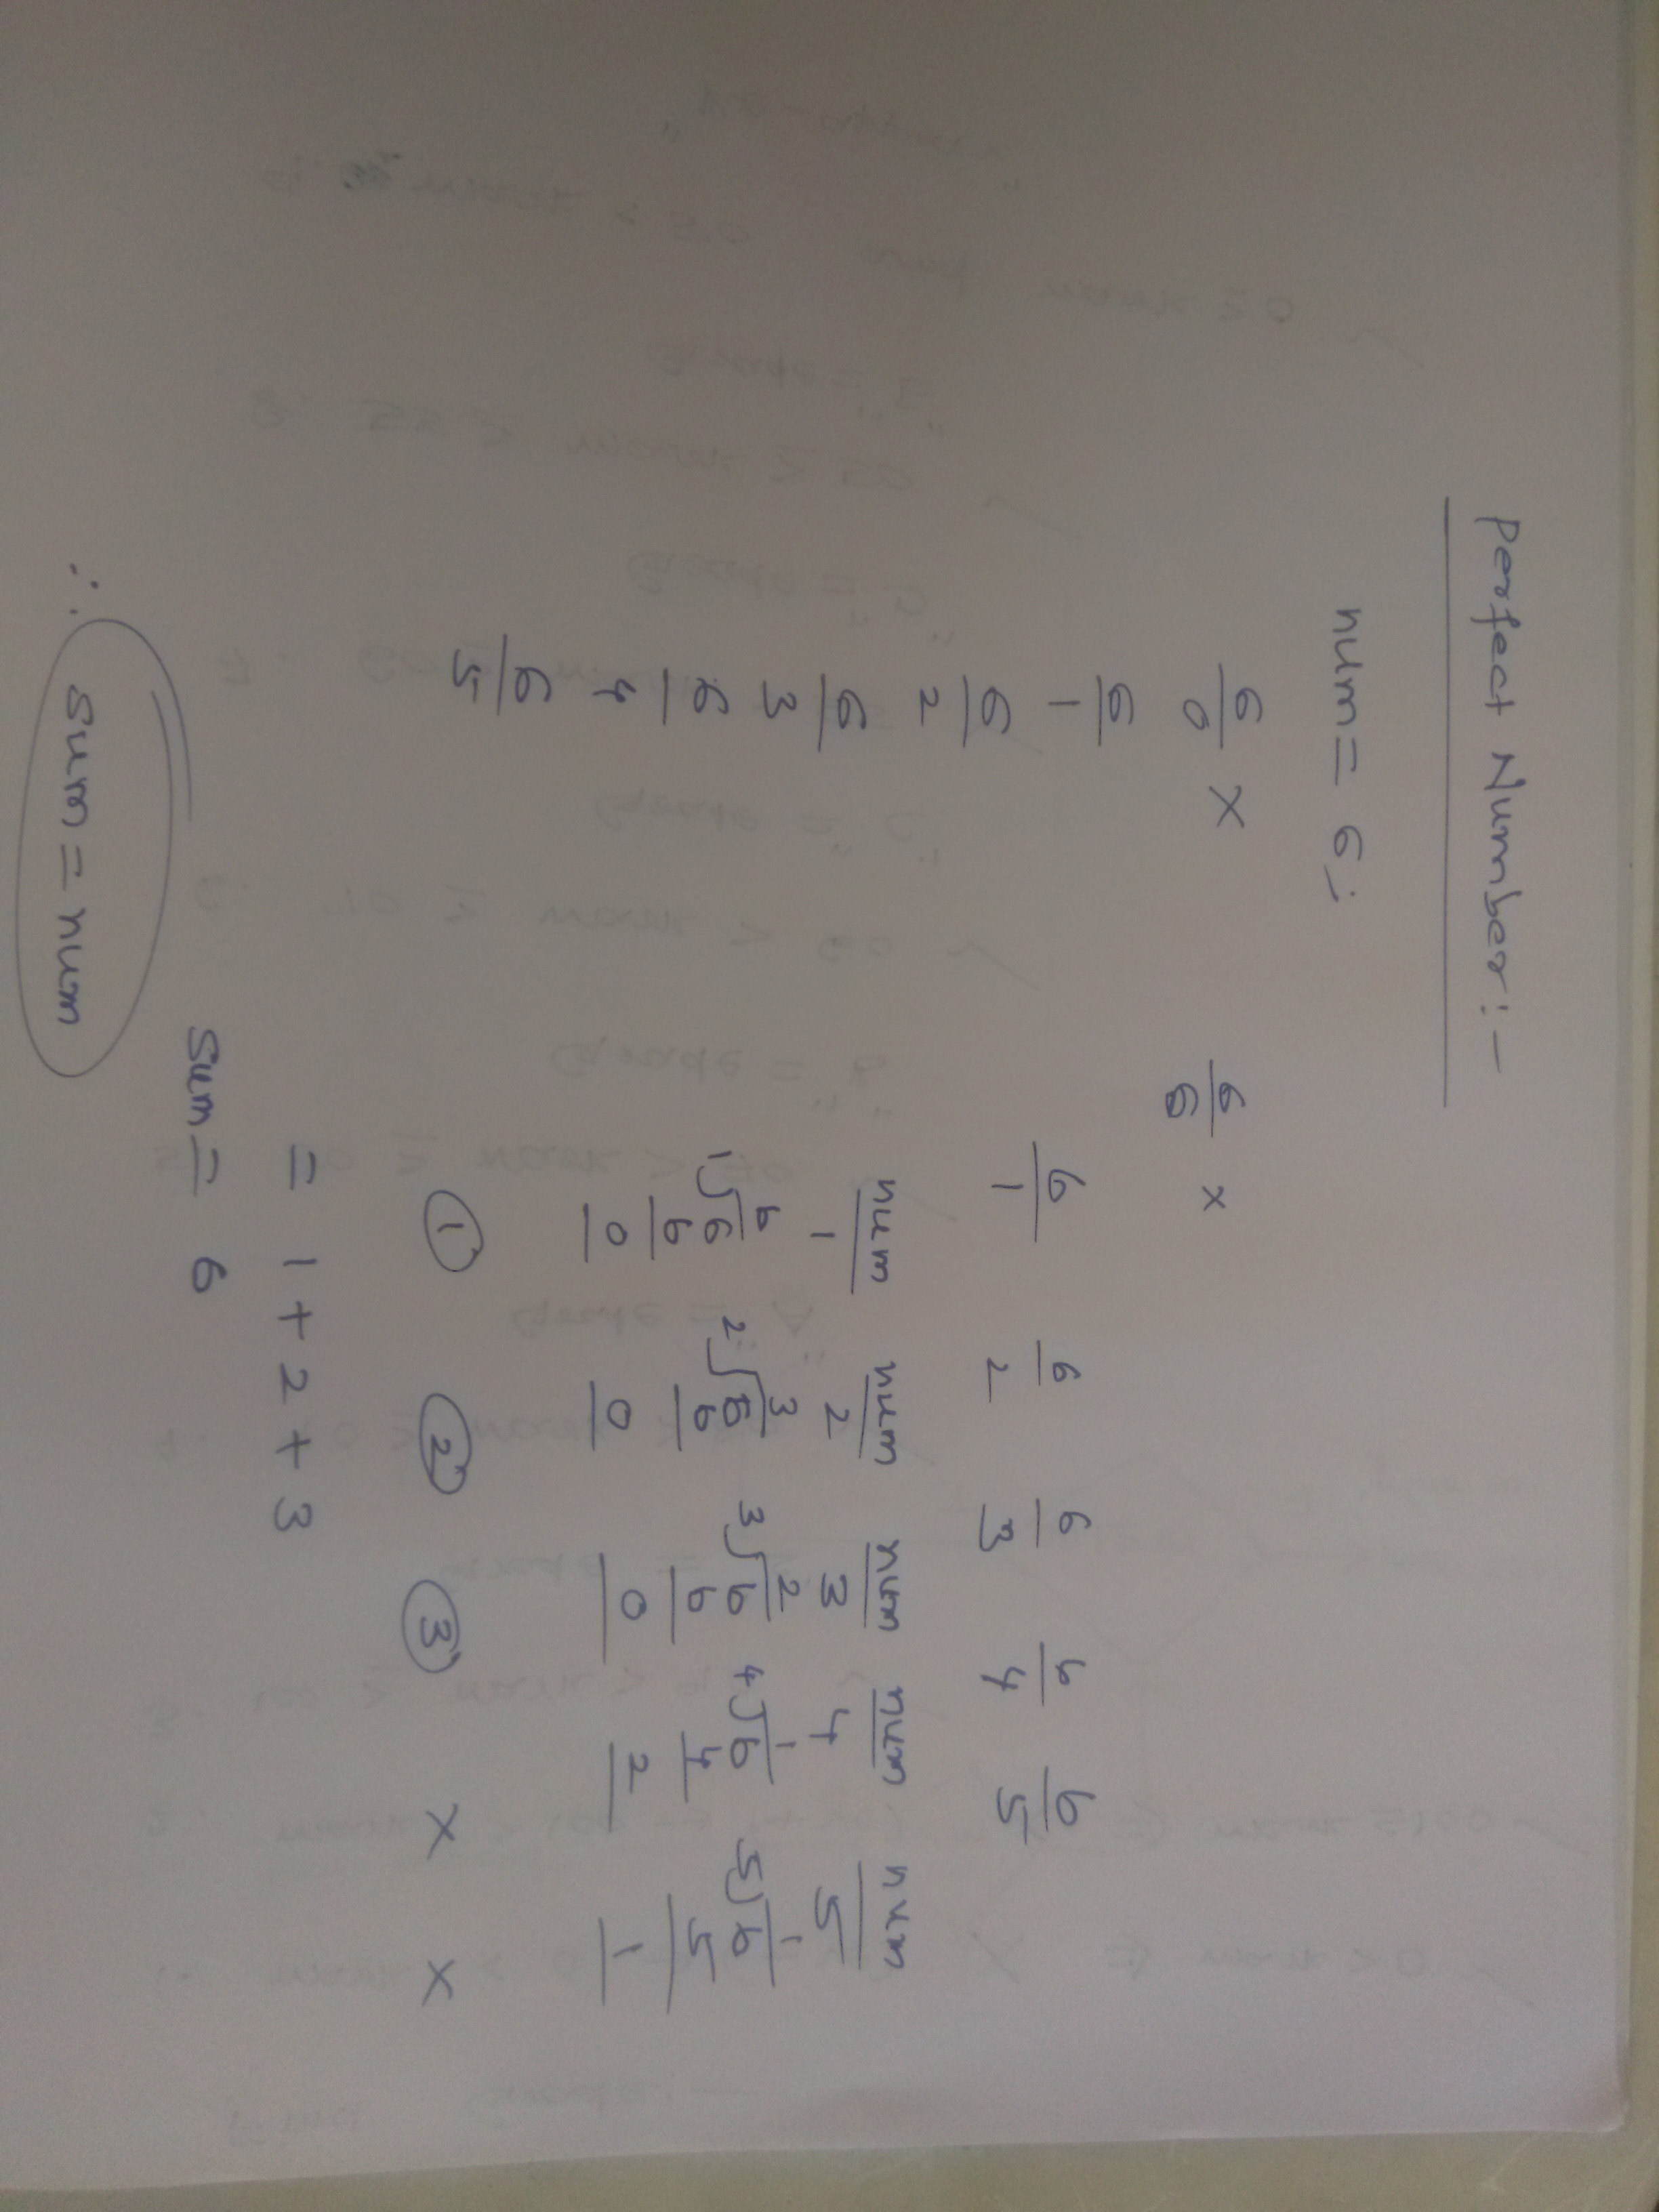 Perfect Number:-
num = 6;
6/0 ×
6/6 ×
6/1
6/2
6/3
6/4
6/5
6/1 6/2 6/3 6/4 6/5
num/1 num/2 num/3 num/4 num/5
6 3 2 1 1
1)6 2)6 3)6 4)6 5)6
6 6 6 4 5
0 0 0 2 1
1 2 3 × ×
= 1 + 2 + 3
sum = 6
∴ sum = num